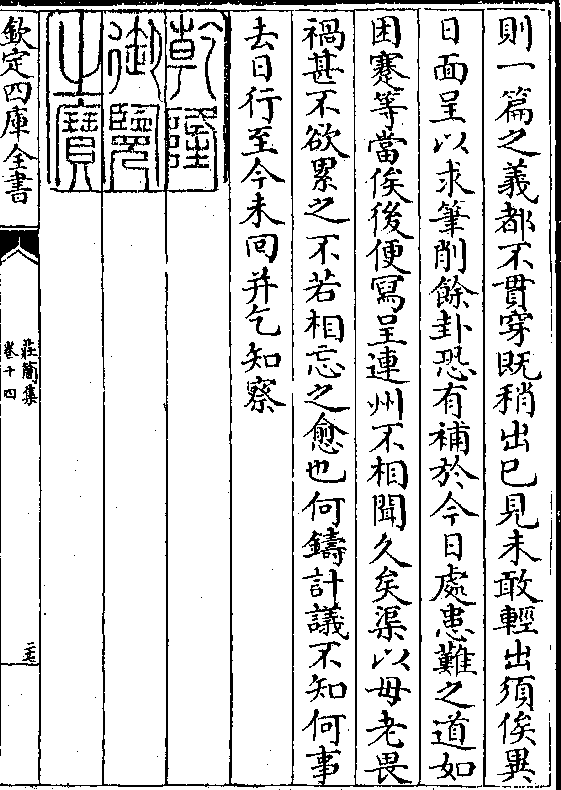 則一篇之義都不貫穿既稍出已見未敢輕出須俟異
日面呈以求筆削餘卦恐有補於今日處患難之道如
困蹇等當俟後便寫呈連州不相聞久矣渠以母老畏
禍甚不欲累之不若相忘之愈也何鑄計議不知何事
去日行至今未回并乞知察
乾隆
御覽
之寶
欽定四庫全書
莊簡集
卷十四
二十七